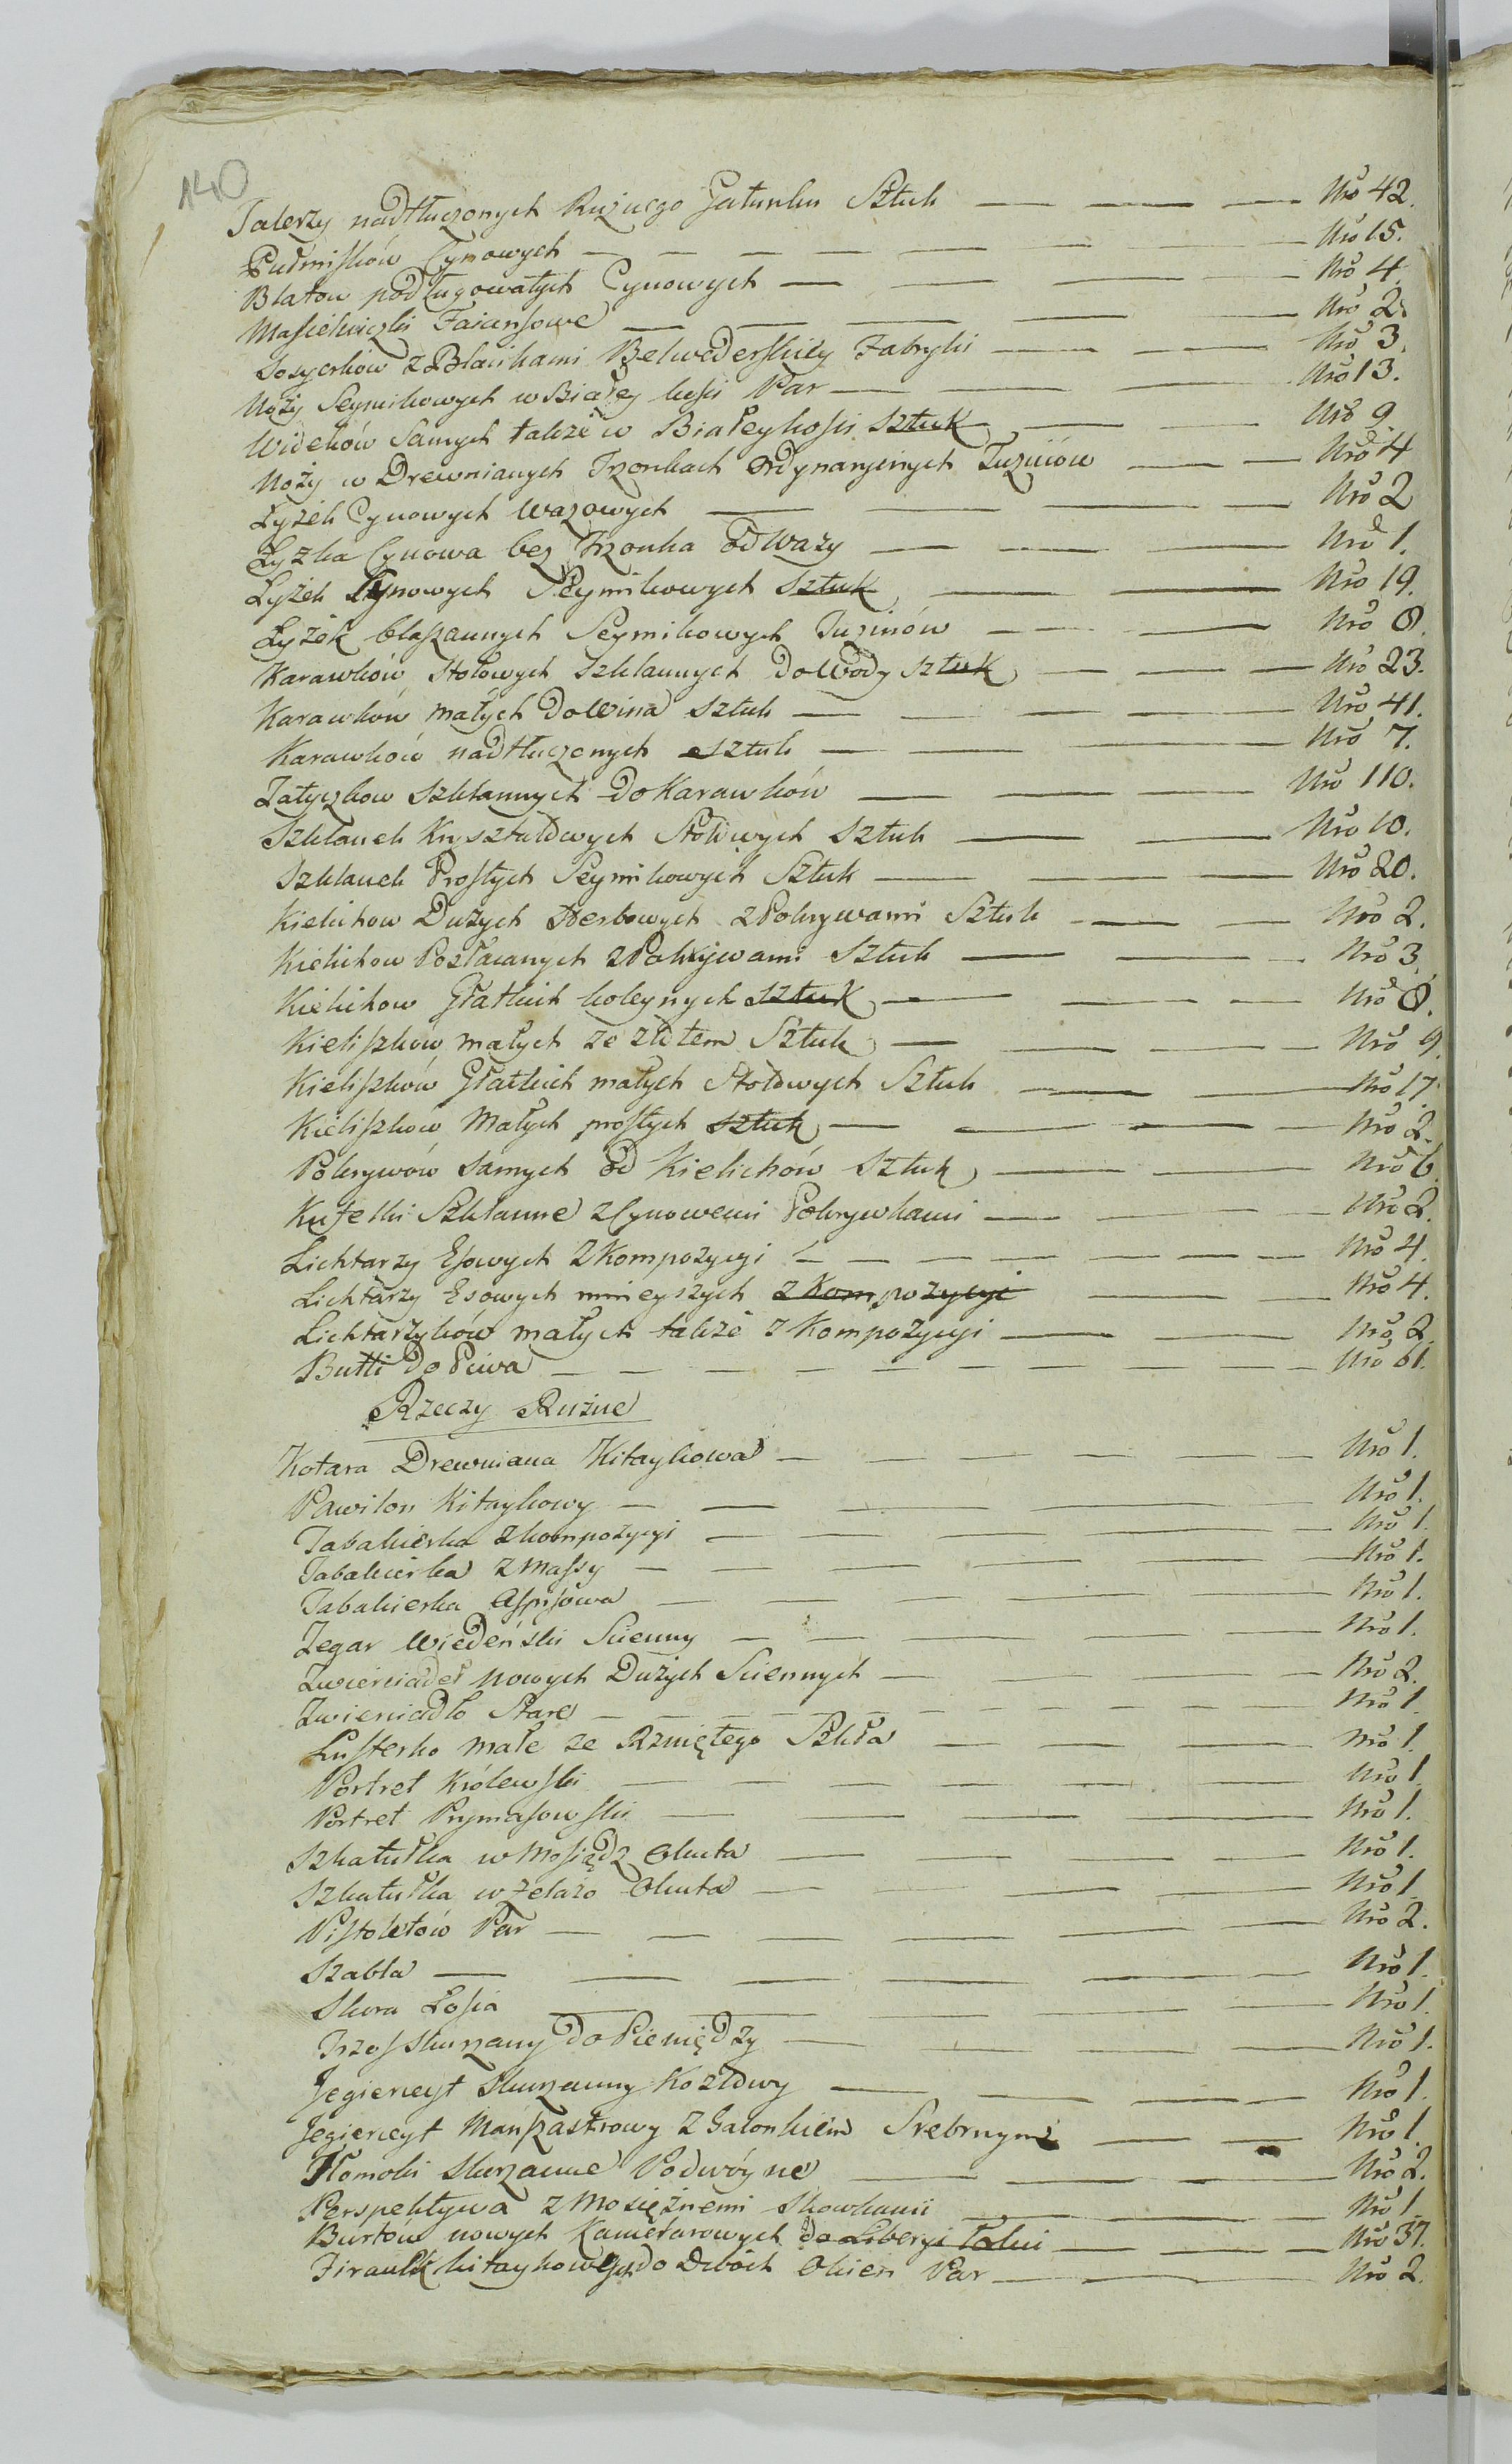 140
Talerzy nadtłuczonych Ruznego Gatunku Sztuk — — — Nro 42.
Pułmisków Cynowych — — — — — — — Nro 15.
Blatow podługowatych Cynowych — — — — — Nro 4.
Masielniczki Faiansowe — — — — — — Nro 2.
Sosyerków z Blatkami Belwederskiey Fabryki — — — Nro 3.
Noży Seymikowych w Białey kości Par — — — — Nro 13.
Widelców Samych także w Białey kości Sztuk — — — Nro 9.
Noży w Drewnianych Trzonkach Ordynaryinych Tuzinów — — Nro 4
Łyżek Cynowych wazowych — — — — Nro 2
Łyzka Cynowa bez Trzonka od Wazy — — — Nro 1.
Łyżek Cynowych Seymikowych Sztuk — — Nro 19.
Łyżek blaszannych Seymikowych Tuzinów — — — Nro 8.
Karawków Stołowych Szklannych do Wody Sztuk — — — Nro 23.
Karawków małych do Wina Sztuk — — — — Nro 41.
Karawków nadtłuczonych Sztuk — — — Nro 7.
Zatyczkow Szklannych do Karawków — — — — Nro 110.
Szklanek Krysztalowych Stołowych Sztuk — — — Nro 10.
Szklanek Prostych Seymikowych Sztuk — — — — Nro 20.
Kielichow Dużych Herbowych z Pokrywami Sztuk — — — Nro 2.
Kielichow Pozłacanych z Pokrywami Sztuk — — — Nro 3.
Kielichow Gładkich koleynych Sztuk — — — — Nro 8.
Kieliszków małych ze złotem Sztuk — — — — Nro 9.
Kieliszków Gładkich małych Stołowych Sztuk — — — Nro 17.
Kieliszków Małych prostych Sztuk — — — — Nro 2.
Pokrywów Samych od Kielichów Sztuk — — — Nro 6.
Kufelki Szklanne z Cynowemi Pokrywkami — — — Nro 2.
Lichtarzy Esowych z Kompozycyi — — — — — — — Nro 4.
Lichtarzy Esowych mnieyszych z Kompozycyi — — Nro 4.
Lichtarzyków małych także z Kompozycyi — — — Nro 2.
Butli do Piwa — — — — — — — — — Nro 61.
Rzeczy Rużne
Kotara Drewniana Kitaykowa — — — — — — Nro 1.
Pawilon Kitaykowy — — — — — — Nro 1.
Tabakierka z kompozycyi — — — — — — Nro 1.
Tabakierka z Massy — — — — — — — Nro 1.
Tabakierka Aspisowa — — — — — — — Nro 1.
Zegar Wiedeński Scienny — — — — — — — Nro 1.
Zwierciadeł nowych Dużych Sciennych — — — — — Nro 2.
Zwierciadło Stare — — — — — — — — — Nro 1.
Lusterko małe ze Rzniętego Szkła — — — — Nro 1.
Portret Królewski — — — — — — Nro 1.
Portret Prymasowski — — — — — Nro 1.
Szkatułka w Mosiądz Okuta — — — — — Nro 1.
Szkatułka w żelazo Okuta — — — — — Nro 1.
Pistoletów Par — — — — — — — Nro 2.
Szabla — — — — — — — Nro 1.
Skura Łosia — — — — — — Nro 1.
Trzos skurzany do Pieniędzy — — — — — Nro 1.
Jegiercyt Skurzanny Kozłowy — — — — Nro 1.
Jegiercyt Manszastrowy z Galonkiem Srebrnym — — Nro 1.
Tłomoki skurzanne Podwóyne — — — — Nro 2.
Perspektywa z Mosiężnemi Skowkami — — — Nro 1.
Burtow nowych Kametarowych do Liberyi Łokci — — — Nro 37.
Firanek kitaykowych do Dwóch Okien Par — — — Nro 2.